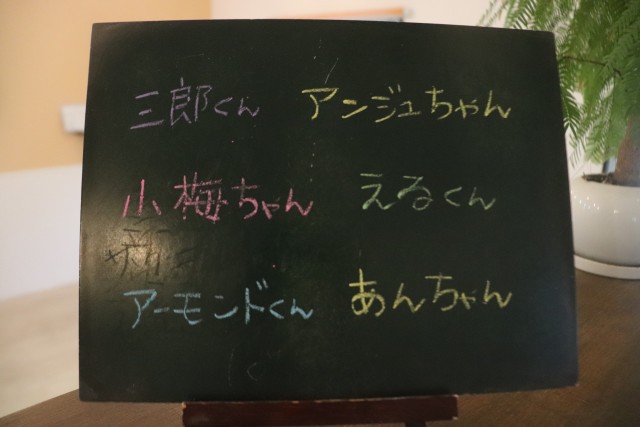 三郎くん アンジュちゃん
小梅ちゃん えるくん
アーモンドくん あんちゃん